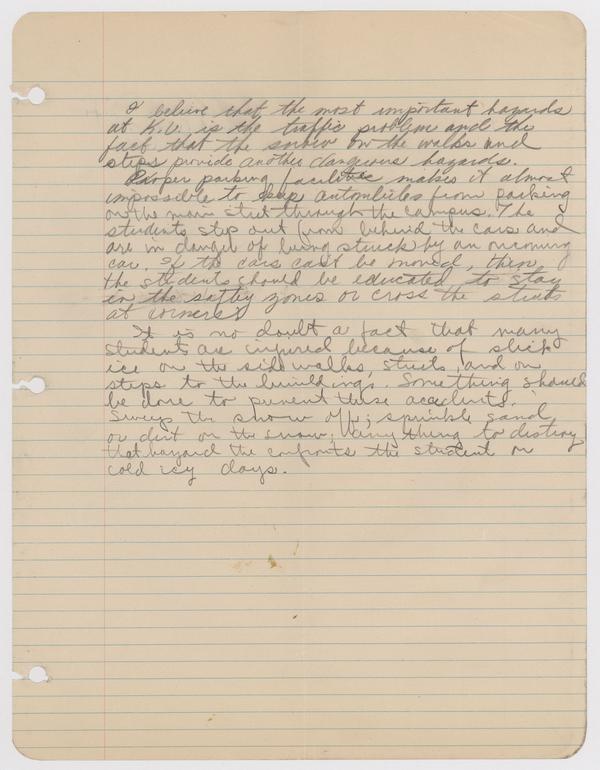 I believe that the most important hazards
at K.U. is the traffic problem and the
fact that the snow on the walks and
steps provide another dangerous hazards.
Proper parking facilities makes it almost
impossible to keep autombiles from parking
on the main steet through the campus. The
students step out from behind the cars and
are in danger of being struck by an oncoming
car. If the cars cast be moved, then
the students should be educated to stay
in the saftey zones or cross the steets
at corners.
It is no doubt a fact that many
students are injured because of slick
ice on the sidewalks, steets, and on
steps to the buildings. Something should
be done to prevent these accidents.
Sweep the snow off; sprinkle sand
or dirt on the snow; any thing to distroy
that hazard the confronts the student on
cold icy days.